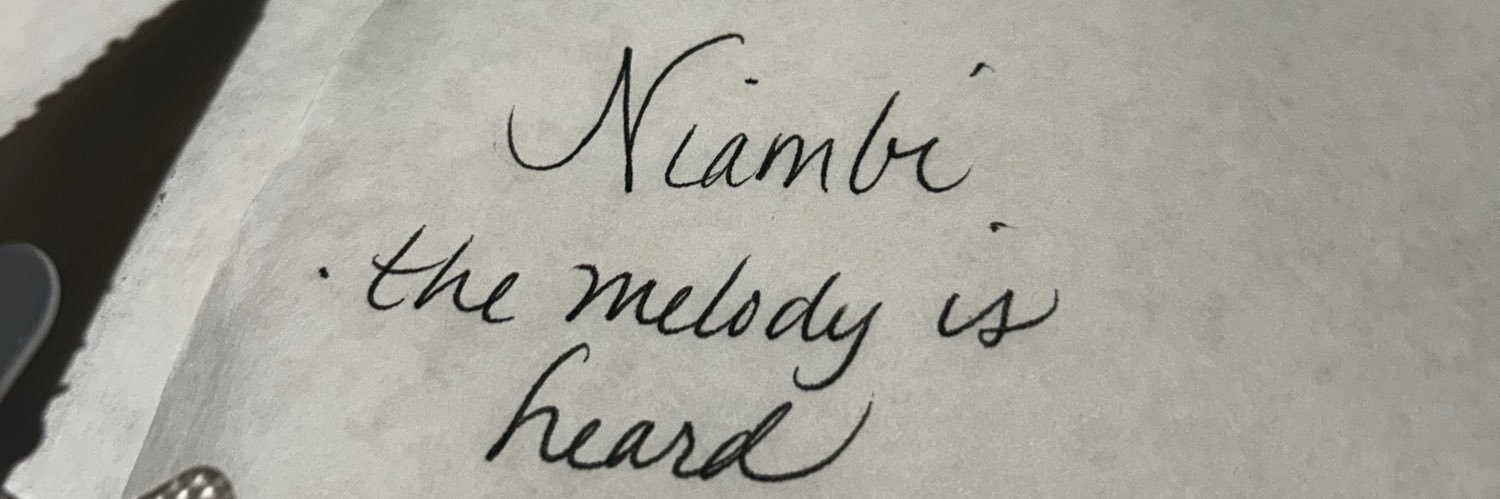 Niambi
· the melody is
heard